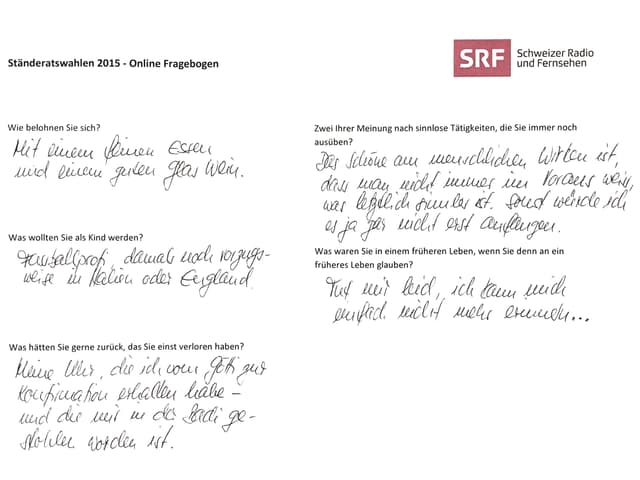 Ständeratswahlen 2015 - Online Fragebogen
SRF Schweizer Radio
und Fernsehen
Wie belohnen Sie sich?
Mit einem feinen Essen
und einem guten Glas Wein.
Was wollten Sie als Kind werden?
Fussballprofi, damals noch vorzugs-
weise in Italien oder England
Was hätten Sie gerne zurück, das Sie einst verloren haben?
Meine Uhr, die ich vom Götti zur
Konfirmation erhalten habe –
und die mir in der Badi ge-
stohlen worden ist.
Zwei Ihrer Meinung nach sinnlose Tätigkeiten, die Sie immer noch
ausüben?
Das Schöne am menschlichen Wirken ist,
dass man nicht immer im Voraus weiss,
was letztlich sinnlos ist. Sonst würde ich
es ja gar nicht erst anfangen.
Was waren Sie in einem früheren Leben, wenn Sie denn an ein
früheres Leben glauben?
Tut mir leid, ich kann mich
einfach nicht mehr erinnern...